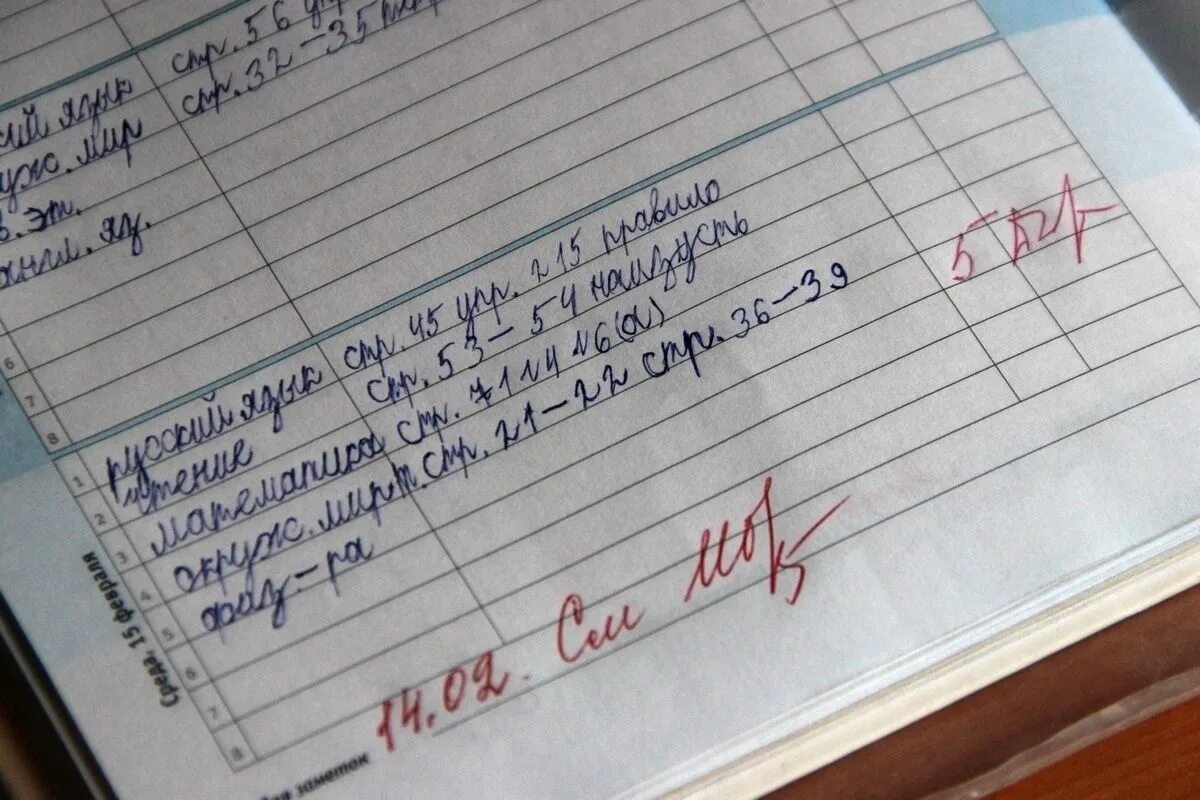 ский язык стр. 56 упр
уж. мир стр. 32-35
в. эт.
англ. яз.
6
7
8
Среда, 15 февраля
1 русский язык стр. 45 упр. 215 правило
2 чтение стр. 53-54 наизусть
3 математика стр. 71 №4 №6(а) 5
4 окруж. мир т. стр. 21-22 стр. 36-39
5 физ-ра
6
7
8
14.02. См
ля заметок